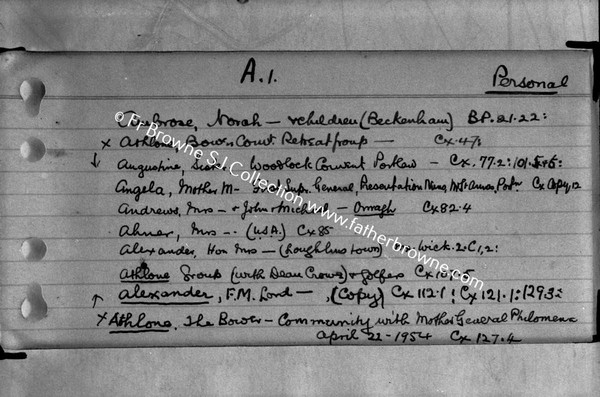 A.1.
Personal
Ambrose, Norah — + children (Beckenham) BP. 21. 22:
x Athlone Bower Court Retreat Group — Cx. 47:
↓ Augustine, Sister Woodlock Convent Portlaw — Cx. 77.2: 101.
Angela, Mother M — Supr. General, Presentation Nuns, Cx Copy, 12
Andrews, Mrs — + John + Michael — Omagh Cx 82.4
Ahner, Mrs —. (U.S.A.) Cx 85
Alexander, Hon Mrs — (Loughlinstown) Wick. 2: C1, 2:
Athlone Group (with Dean Crowe) + golfers Cx
↑ Alexander, F.M. Lord —, (Copy) Cx 112.1: Cx 121.1: 129.3:
x Athlone, The Bower — Community with Mother General Philomena
April 22 - 1954 Cx 127.4
© Fr Browne S.J. Collection www.fatherbrowne.com